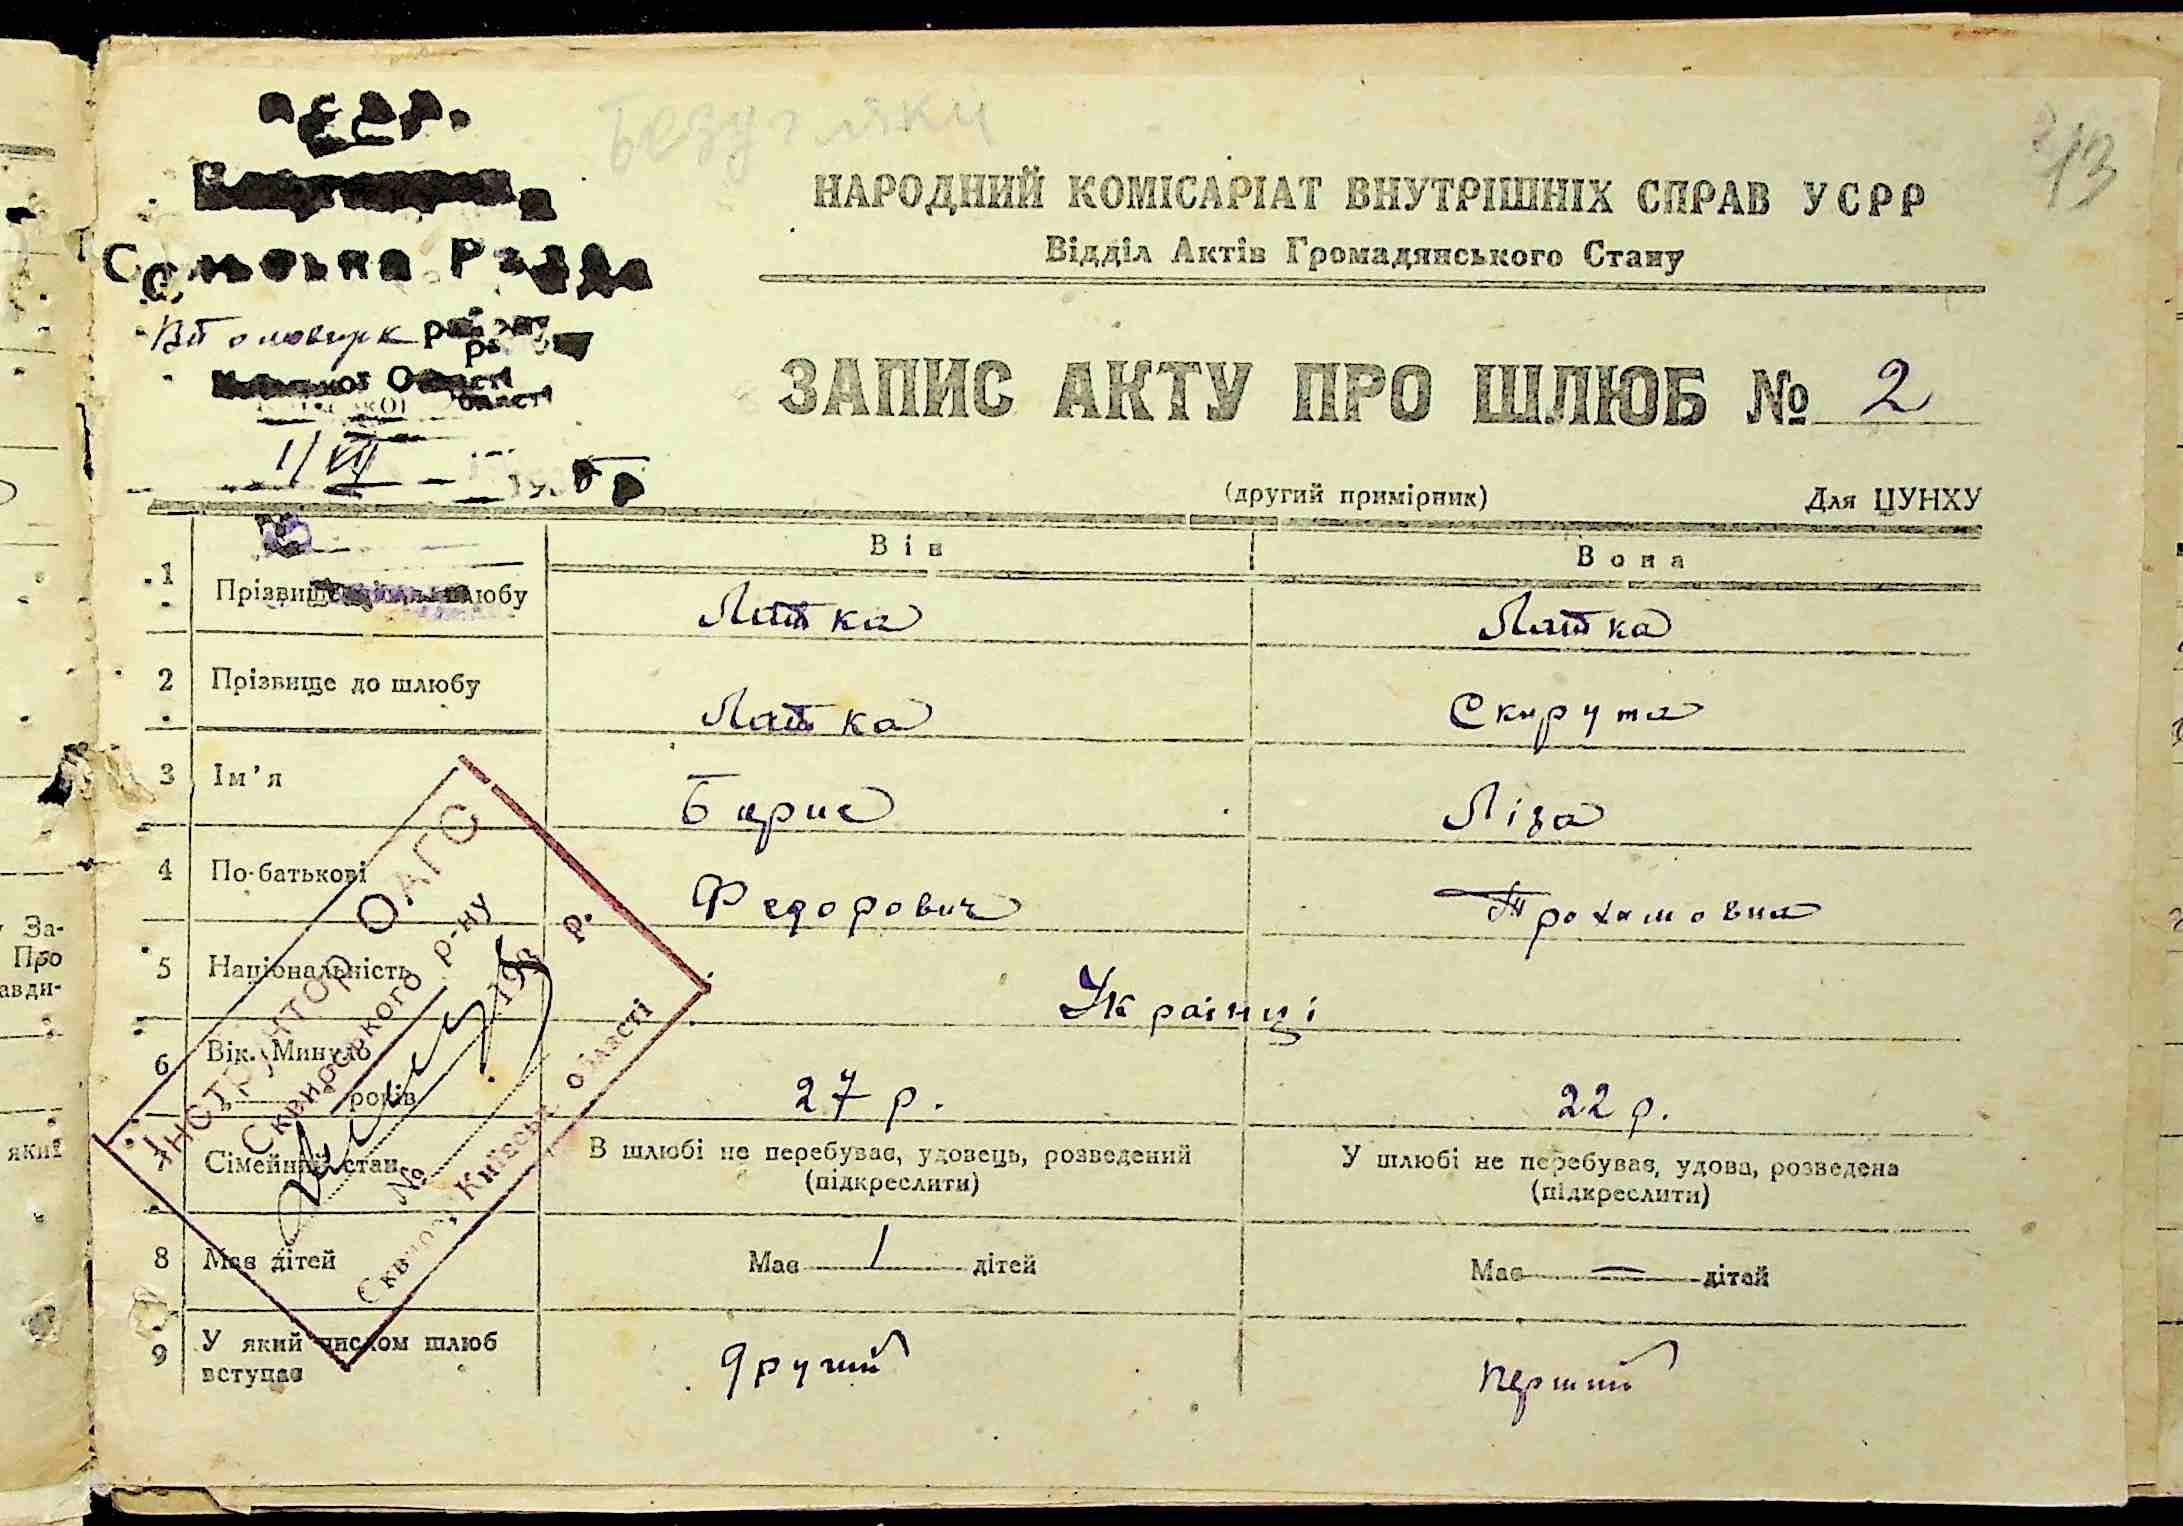 Безугляки
213
У.С.Р.Р.
Сільська Рада
району
Київської Області
1/VII 193
НАРОДНИЙ КОМІСАРІАТ ВНУТРІШНІХ СПРАВ УСРР
Відділ Актів Громадянського Стану
ЗАПИС АКТУ ПРО ШЛЮБ № 2
(другий примірник) Для ЦУНХУ
Він Вона
1 Прізвище після шлюбу Латка Латка
2 Прізвище до шлюбу Латка Скирута
3 Ім'я Борис Ліза
4 По-батькові Федорович Трохимовна
5 Національність Українці
6 Вік. Минуло років 27 р. 22 р.
7 Сімейний стан В шлюбі не перебуває, удовець, розведений (підкреслити) У шлюбі не перебуває, удова, розведена (підкреслити)
8 Має дітей Має 1 дітей Має — дітей
9 У який числом шлюб вступає другий перший
Інструктор ОАГС
Сквирського р-ну
193 р.
№
Сквира, Київськ. області
За-
Про
авди-
який